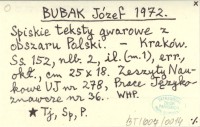 BUBAK Józef 1972.
Spiskie teksty gwarowe z
obszaru Polski. - Kraków.
Ss. 152, nlb. 2, il. (m. 1), err.,
okł., cm 25 x 18. Zeszyty Nau-
kowe UJ nr 278, Prace Języko-
znawcze nr 36. WHP.
★ Tj, Sp, P.